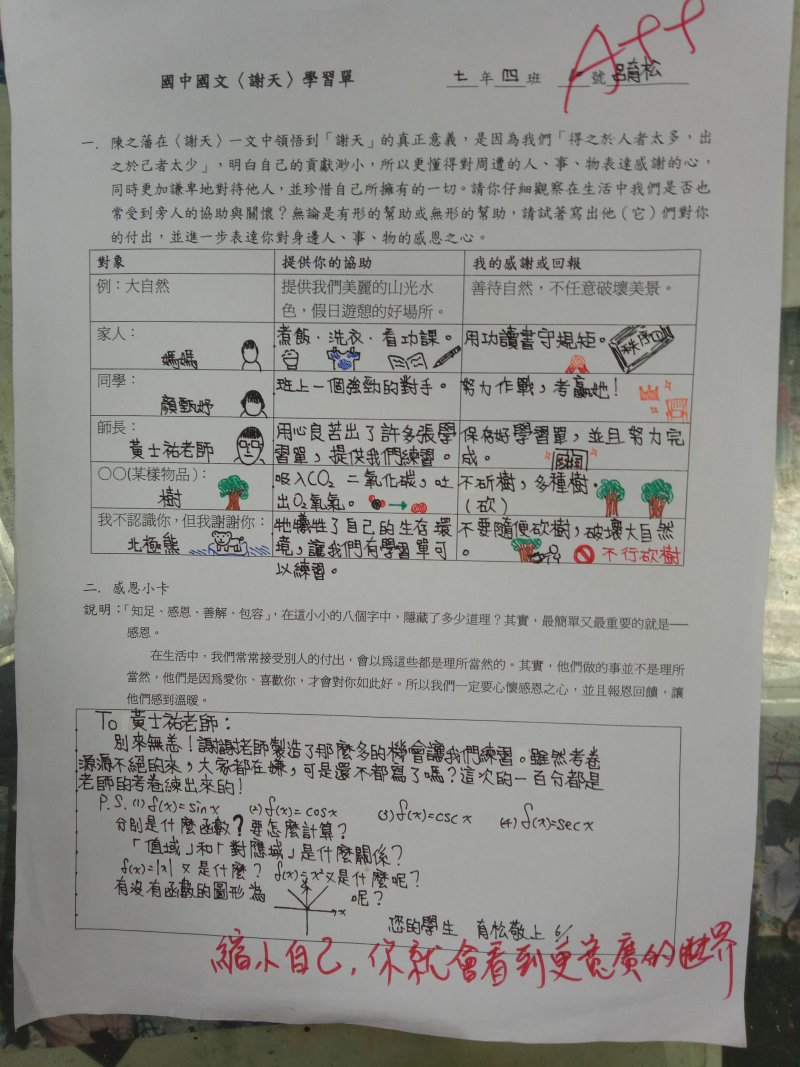 國中國文〈謝天〉學習單 七年四班 號 呂育松
A++
一. 陳之藩在〈謝天〉一文中領悟到「謝天」的真正意義，是因為我們「得之於人者太多，出
之於己者太少」，明白自己的貢獻渺小，所以更懂得對周遭的人、事、物表達感謝的心，
同時更加謙卑地對待他人，並珍惜自己所擁有的一切。請你仔細觀察在生活中我們是否也
常受到旁人的協助與關懷？無論是有形的幫助或無形的幫助，請試著寫出他（它）們對你
的付出，並進一步表達你對身邊人、事、物的感恩之心。
對象 提供你的協助 我的感謝或回報
例：大自然 提供我們美麗的山光水 善待自然，不任意破壞美景。
色，假日遊憩的好場所。
家人： 煮飯．洗衣．看功課。 用功讀書守規矩。
媽媽 秩序
同學： 班上一個強勁的對手。 努力作戰，考贏她！
顏甄妤
師長： 用心良苦出了許多張學 保存好學習單，並且努力完
黃士祐老師 習單，提供我們練習。 成。
〇〇(某樣物品)： 吸入CO2 二氧化碳，吐 不斫樹，多種樹．
樹 出O2氧氣。 (砍)
我不認識你，但我謝謝你： 牠犧牲了自己的生存環 不要隨便砍樹，破壞大自然
北極熊 境，讓我們有學習單可 。 不行砍樹
以練習。
二. 感恩小卡
說明：「知足、感恩、善解、包容」，在這小小的八個字中，隱藏了多少道理？其實，最簡單又最重要的就是──
感恩。
在生活中，我們常常接受別人的付出，會以為這些都是理所當然的。其實，他們做的事並不是理所
當然，他們是因為愛你、喜歡你，才會對你如此好。所以我們一定要心懷感恩之心，並且報恩回饋，讓
他們感到溫暖。
To 黃士祐老師：
別來無恙！謝謝老師製造了那麼多的機會讓我們練習。雖然考卷
源源不絕的來，大家都在嫌，可是還不都寫了嗎？這次的一百分都是
老師的考卷練出來的！
P.S. (1) f(x)=sinx (2) f(x)=cosx (3) f(x)=cscx (4) f(x)=secx
分別是什麼函數？要怎麼計算？
「值域」和「對應域」是什麼關係？
f(x)=|x| 又是什麼？ f(x)=x²又是什麼呢？
有沒有函數的圖形為 x 呢？
您的學生 育松敬上
縮小自己，你就會看到更寬廣的世界